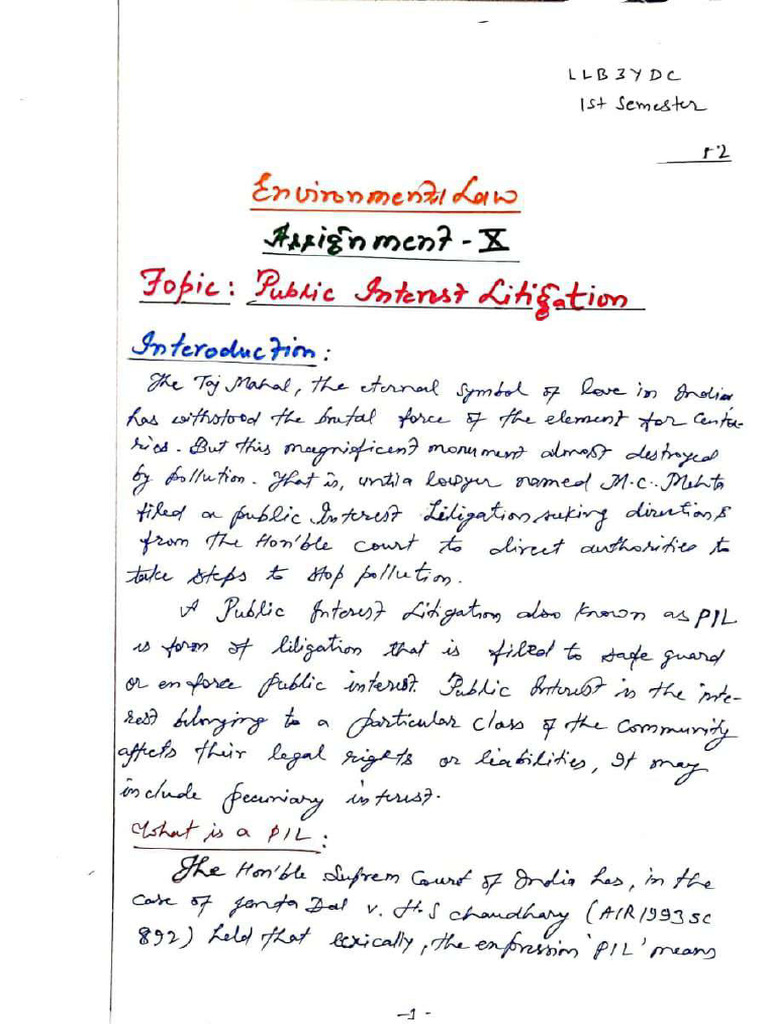 LLB3YDC
1st Semester
Environmental Law
Assignment - X
Topic: Public Interest Litigation
Interoduction:
The Taj Mahal, the eternal symbol of love in India,
has withstood the brutal force of the element for centu-
ries. But this magnificent monument almost destroyed
by pollution. That is, until a lawyer named M.C. Mehta
filed a public Interest Litigation, seking directions
from the Hon'ble court to direct authorities to
take steps to stop pollution.
A Public Interest Litigation also known as PIL
is form of litigation that is filed to safe guard
or enforce public interest. Public Interest is the inte-
rest belonging to a particular class of the community
affects their legal rights or liabilities, It may
include pecuniary interest.
What is a PIL:
The Hon'ble Suprem Court of India has, in the
case of Janta Dal v. H.S chaudhary (AIR 1993 SC
892) held that lexically, the expression 'PIL' means
-1-